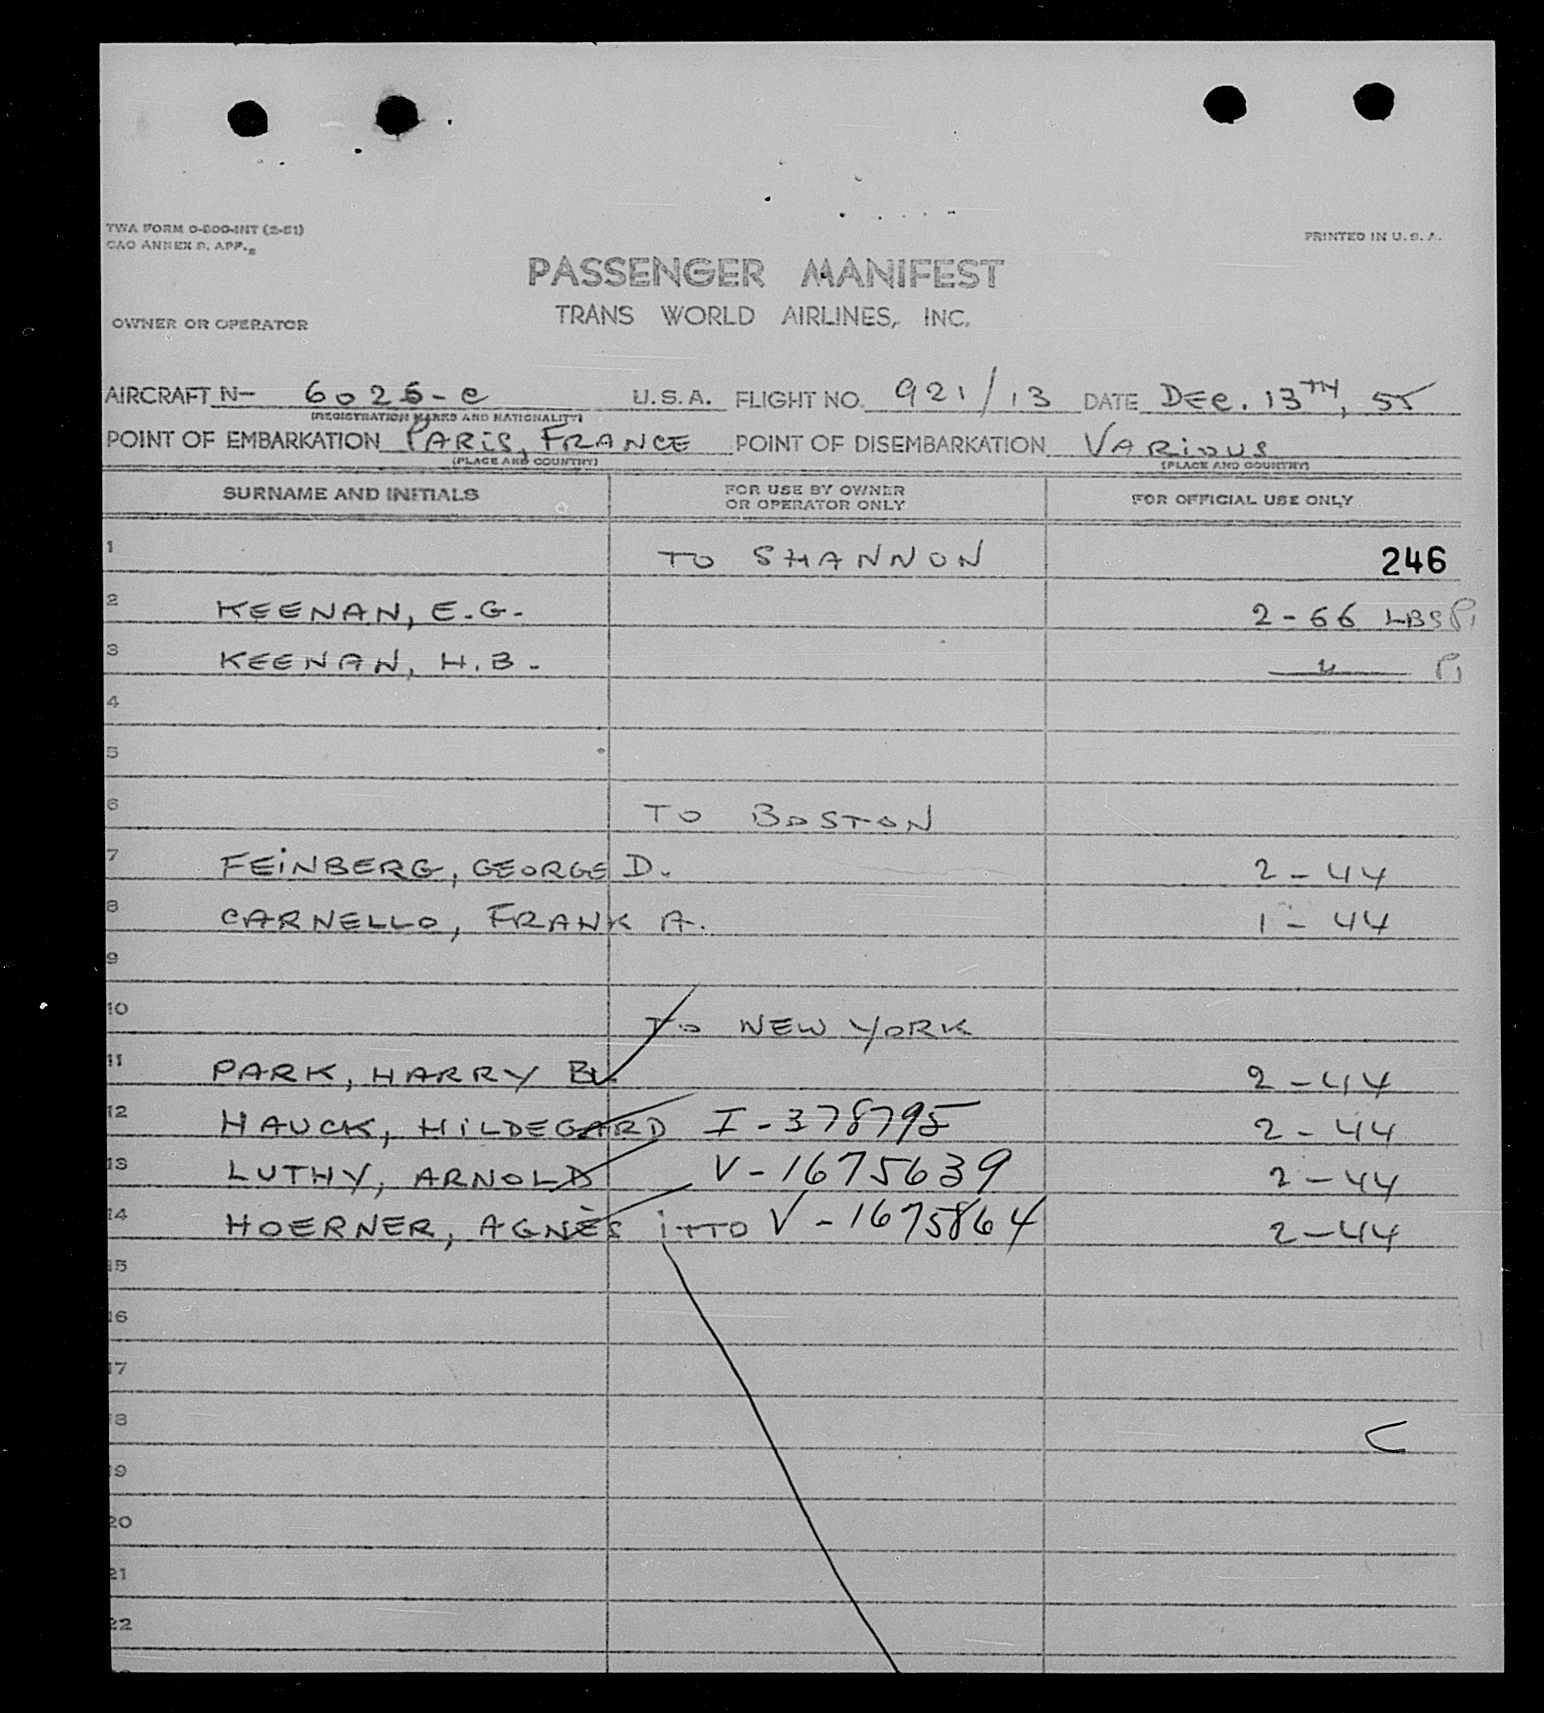 TWA FORM O-800-INT (2-51)
CAO ANNEX 9. APP. 2
PRINTED IN U. S. A.
PASSENGER MANIFEST
TRANS WORLD AIRLINES, INC.
OWNER OR OPERATOR
AIRCRAFT N- 6025-C U.S.A. FLIGHT NO. 921/13 DATE DEC. 13TH, 55
(REGISTRATION MARKS AND NATIONALITY)
POINT OF EMBARKATION PARIS, FRANCE POINT OF DISEMBARKATION VARIOUS
(PLACE AND COUNTRY) (PLACE AND COUNTRY)
SURNAME AND INITIALS FOR USE BY OWNER OR OPERATOR ONLY FOR OFFICIAL USE ONLY
1 TO SHANNON 246
2 KEENAN, E.G. 2 - 66 LBS
3 KEENAN, H.B. - "
4
5
6 TO BOSTON
7 FEINBERG, GEORGE D. 2 - 44
8 CARNELLO, FRANK A. 1 - 44
9
10 TO NEW YORK
11 PARK, HARRY 2 - 44
12 HAUCK, HILDEGARD I - 378795 2 - 44
13 LUTHY, ARNOLD V - 1675639 2 - 44
14 HOERNER, AGNÈS ITTO V - 1675864 2 - 44
15
16
17
18 C
19
20
21
22